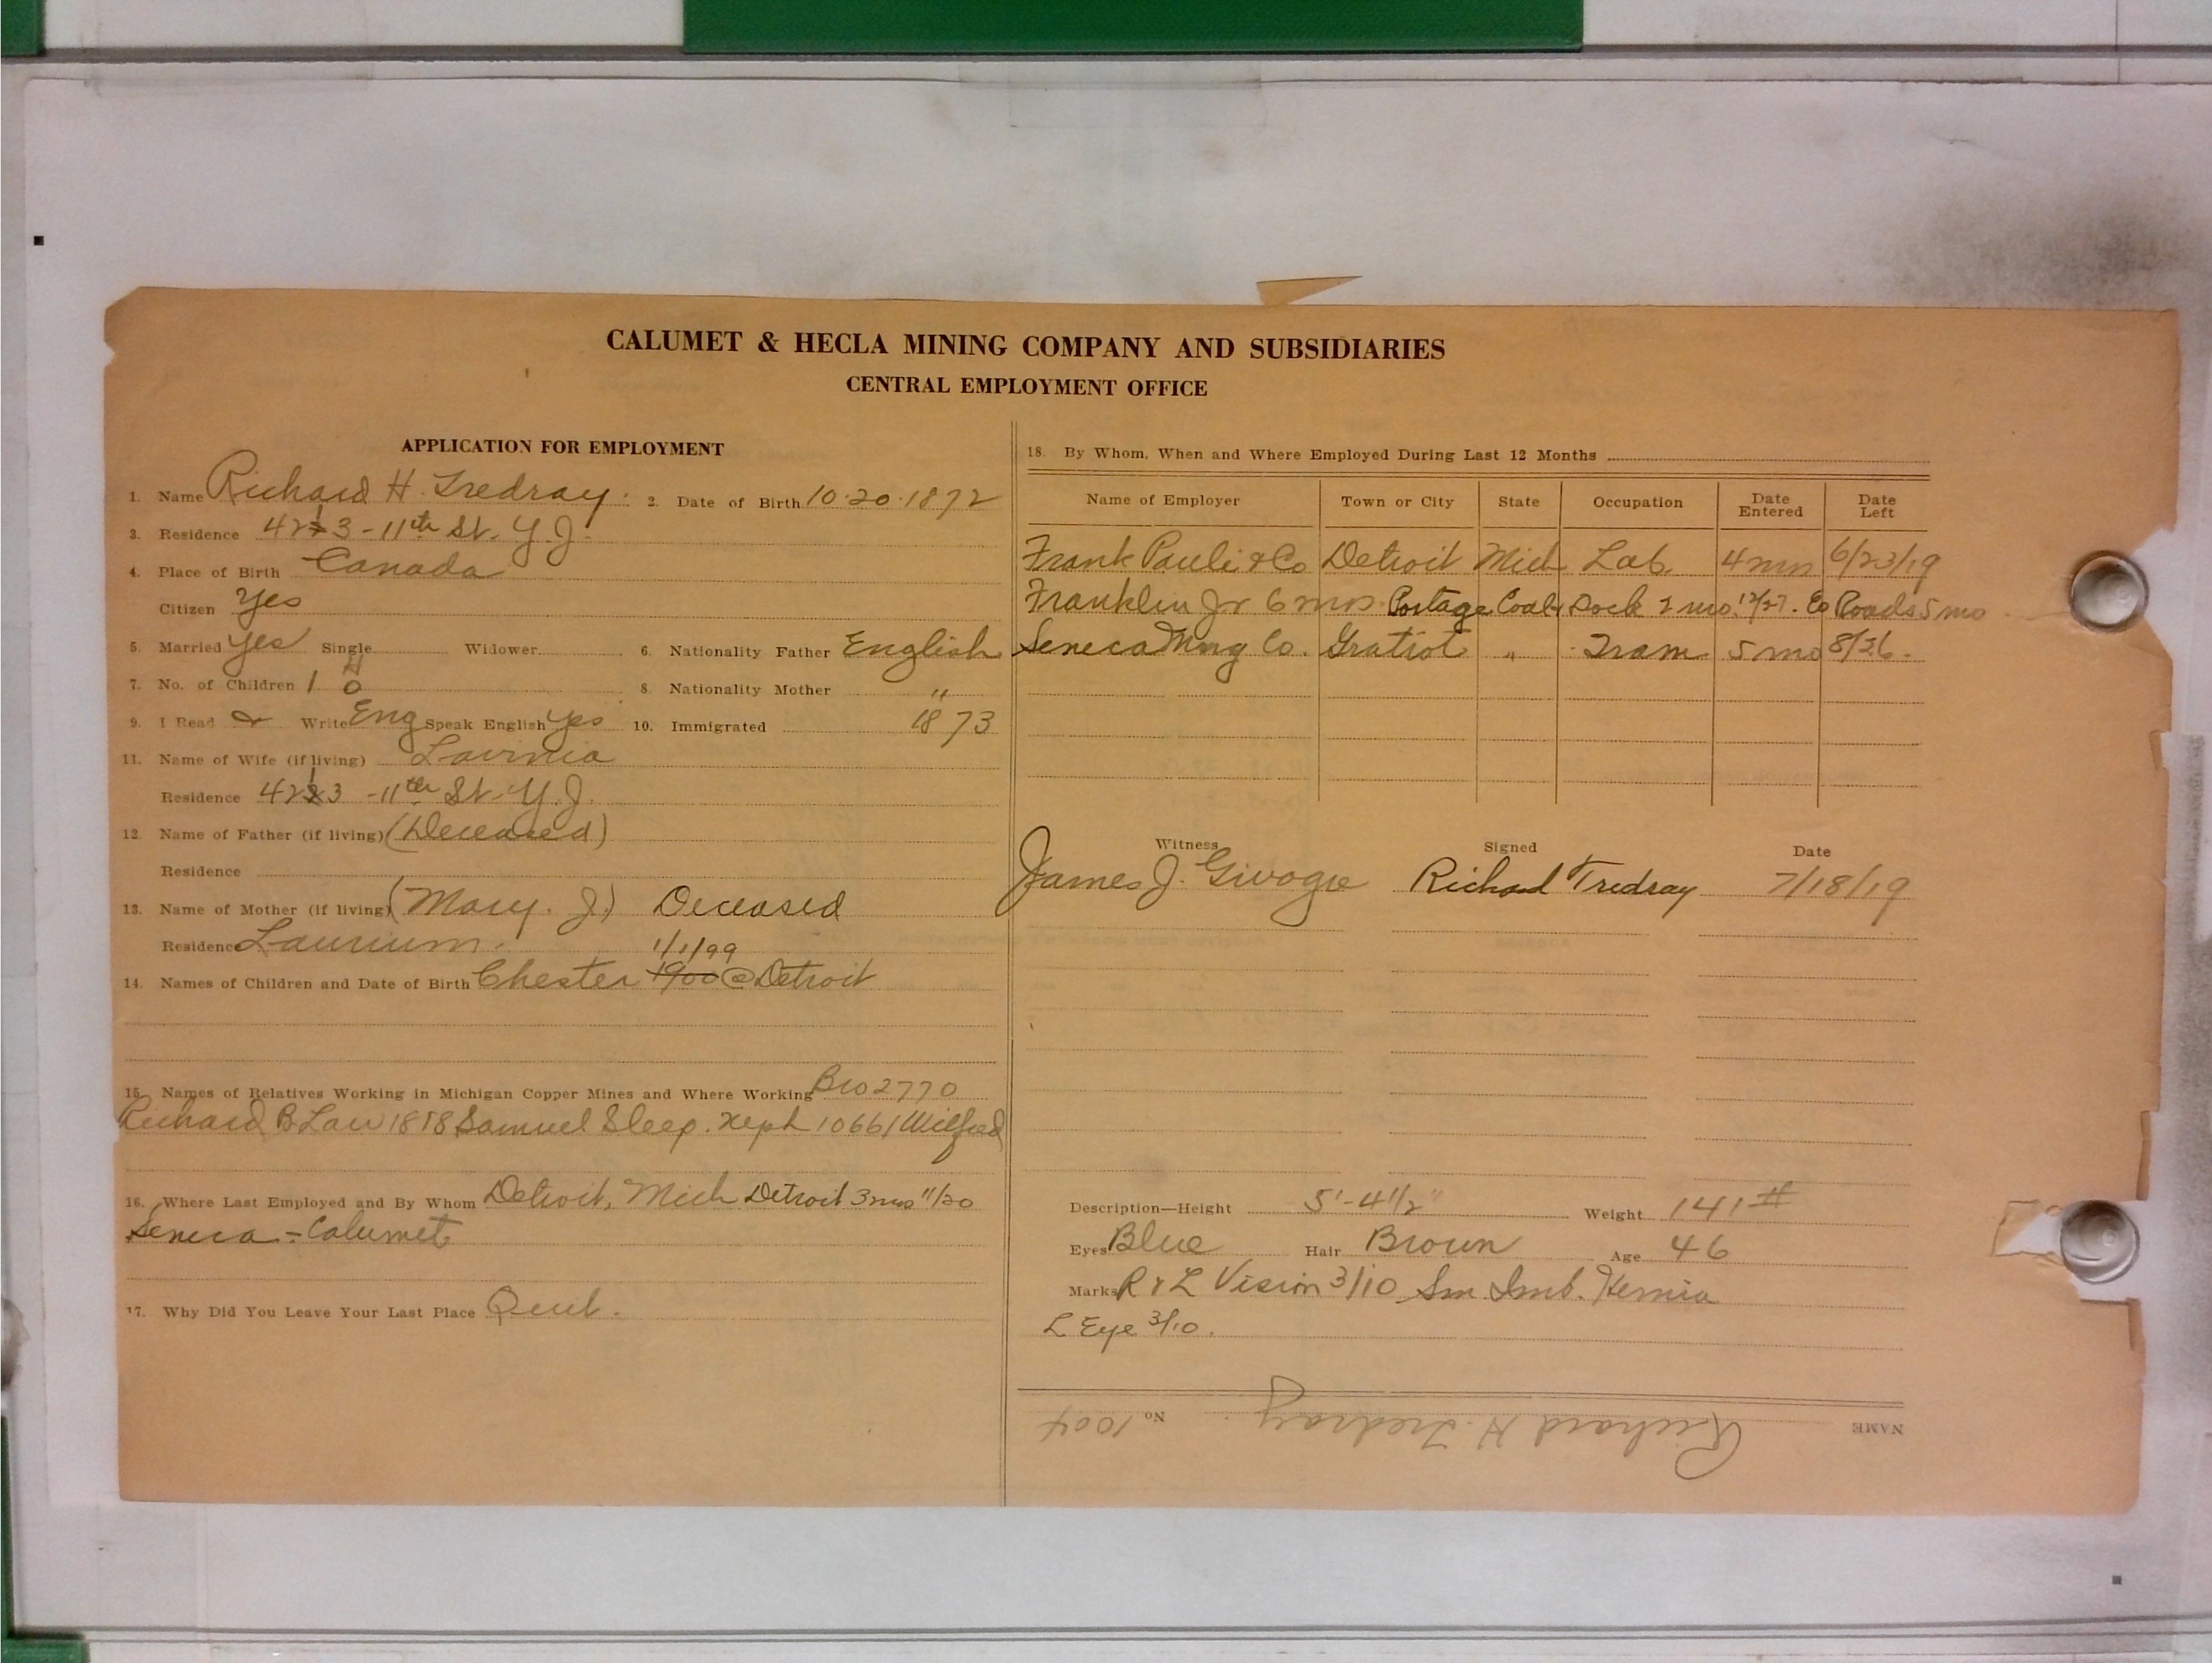 CALUMET & HECLA MINING COMPANY AND SUBSIDIARIES
CENTRAL EMPLOYMENT OFFICE
APPLICATION FOR EMPLOYMENT
1. Name Richard H. Tredray. 2. Date of Birth 10-20-1872
3. Residence 4213 - 11th St. Y.J.
4. Place of Birth Canada
Citizen Yes
5. Married Yes Single Widower 6. Nationality Father English
7. No. of Children 1 8. Nationality Mother "
9. I Read & Write Eng Speak English yes 10. Immigrated 1873
11. Name of Wife (if living) Lavinia
Residence 4213 - 11th St. Y.J.
12. Name of Father (if living) (Deceased)
Residence
13. Name of Mother (if living) (Mary. J.) Deceased
Residence Laurium. 1/1/99
14. Names of Children and Date of Birth Chester 1900 @ Detroit
15. Names of Relatives Working in Michigan Copper Mines and Where Working Bro 2770
Richard B Law 1818 Samuel Sleep. Neph 10661 Wilfred
16. Where Last Employed and By Whom Detroit, Mich Detroit 3 mos 11/20
Seneca - Calumet
17. Why Did You Leave Your Last Place Quit.
18. By Whom, When and Where Employed During Last 12 Months
Name of Employer Town or City State Occupation Date Entered Date Left
Frank Pauli & Co Detroit Mich Lab. 4 mos 6/23/19
Franklin Jr 6 mos. Portage Coal Dock 2 mo. 12/27. Co Roads 5 mo
Seneca Mng Co. Gratiot " Tram 5 mo 8/26.
Witness Signed Date
James J. Richard Tredray 7/18/19
Description—Height 5'-4 1/2" Weight 141#
Eyes Blue Hair Brown Age 46
Marks R & L Vision 3/10 Sm Imb. Hernia
L Eye 3/10.
NAME Richard H. Tredray. No 1004